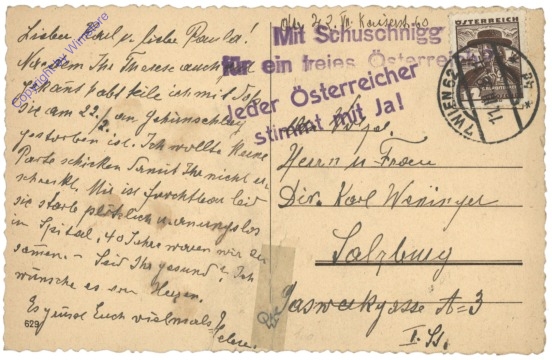 Lieber Karl u. liebe Paula!
Nachdem Ihr Therese auch gut
gekannt habt teile ich mit daß
sie am 22./2. an Gehirnschlag
gestorben ist. Ich wollte keine
Parte schicken damit Ihr nicht er-
schreckt. Mir ist furchtbar leid
sie starb plötzlich u. ahnungslos
im Spital. 40 Jahre waren wir bei-
samen. – Seid Ihr gesund? Ich
wünsche es von Herzen.
Es grüßt Euch vielmals
629
Mit Schuschnigg
für ein freies Österreich
Jeder Österreicher
stimmt mit Ja!
ÖSTERREICH
WIEN 62
Herrn u. Frau
Dir. Karl Weninger
Salzburg
Gaswerkgasse
I. St.
Copyright by Winfare